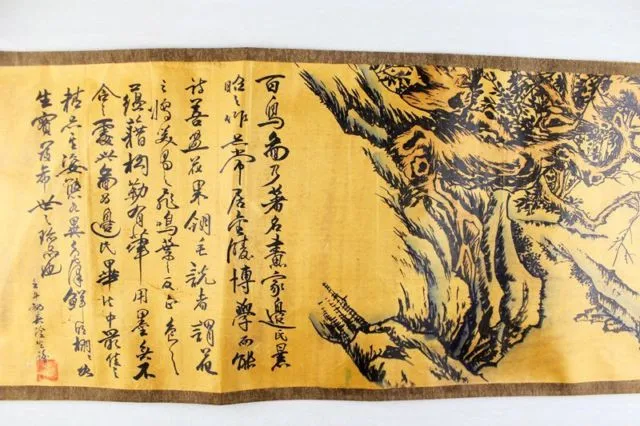 百鳥圖乃著名畫家邊氏景
昭之作常居金陵博學而能
詩善畫花果翎毛説者謂花
之嬌美鳥之飛鳴葉之反正色之
蘊藉構勒有筆用墨無不
合宜此圖為邊氏畢生中最佳之
姿態各異鮮明栩栩如
生實屬希世之珍也